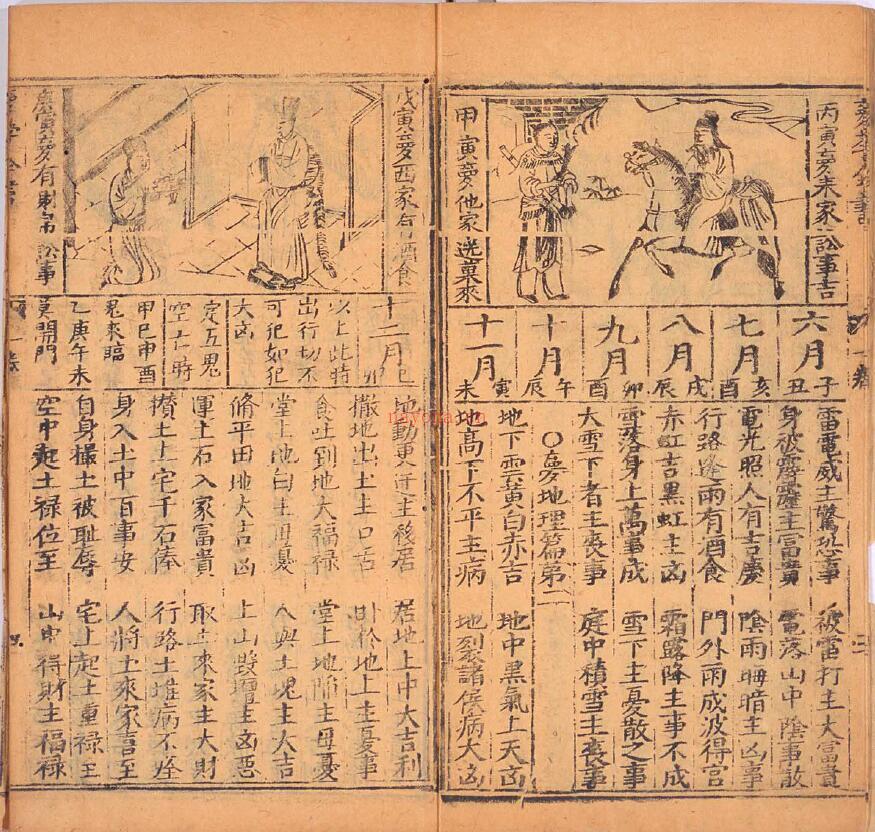 丙寅夢朱家訟事吉
甲寅夢他家送菓來
六月
子
丑
七月
亥
酉
八月
戌
辰
九月
卯
酉
十月
午
辰
十一月
寅
未
雷電威主驚恐事
被雷打主大富貴
身被霹靂主富貴
電落山中陰事散
電光照人有吉慶
陰雨晦暗主凶事
行路逢雨有酒食
門外雨成波得官
赤虹吉黑虹主凶
霜露降主事不成
雪落身上萬事成
雪下主憂散之事
大雪下者主喪事
庭中積雪主喪事
○夢地理篇第二
地下雲黃白赤吉
地中黑氣上天凶
地高下不平主病
地裂諸侯病大凶
戊寅夢西家有酒食
庚寅夢有財帛訟事
十二月
巳
卯
以上此時
出行切不
可犯如犯
大凶
定五鬼
空亡時
甲巳申酉
鬼來臨
乙庚午未
莫開門
地動更遷主移居
居地上中大吉利
撒地出土主口舌
卧於地上主憂事
食吐到地大福祿
堂上地陷主母憂
堂上地白主母憂
人與土塊主大吉
脩平田地大吉凶
上山毀壇主凶惡
運土石入家富貴
取土來家主大財
攢土上宅千石俸
行路土堆病不痊
身入土中百事安
人將土來家喜至
自身撮土被耻辱
宅上起土重祿至
空中起土祿位至
山中得財主福祿